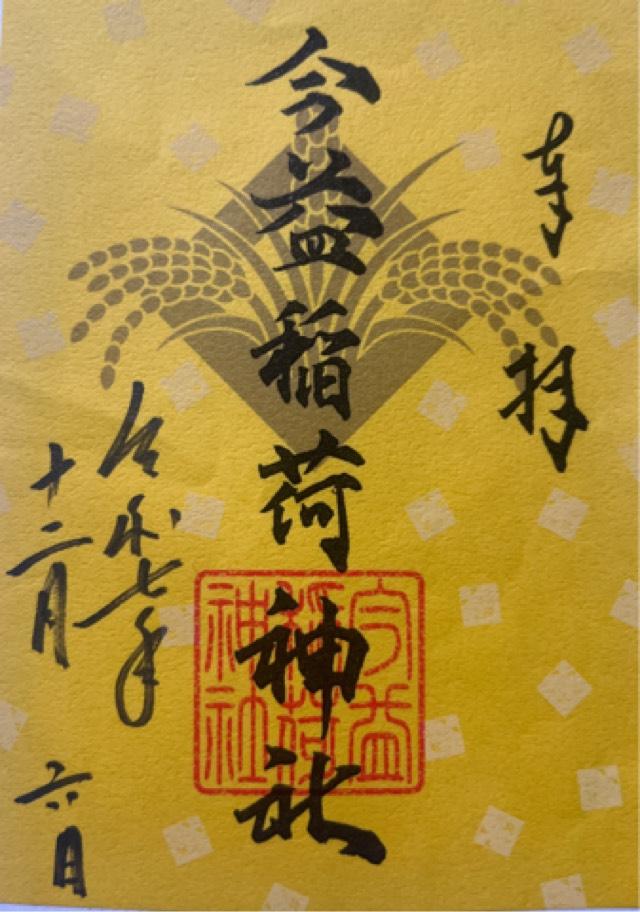 奉拝
今益稲荷神社
今益
稲荷
神社
令和七年
十二月
六日